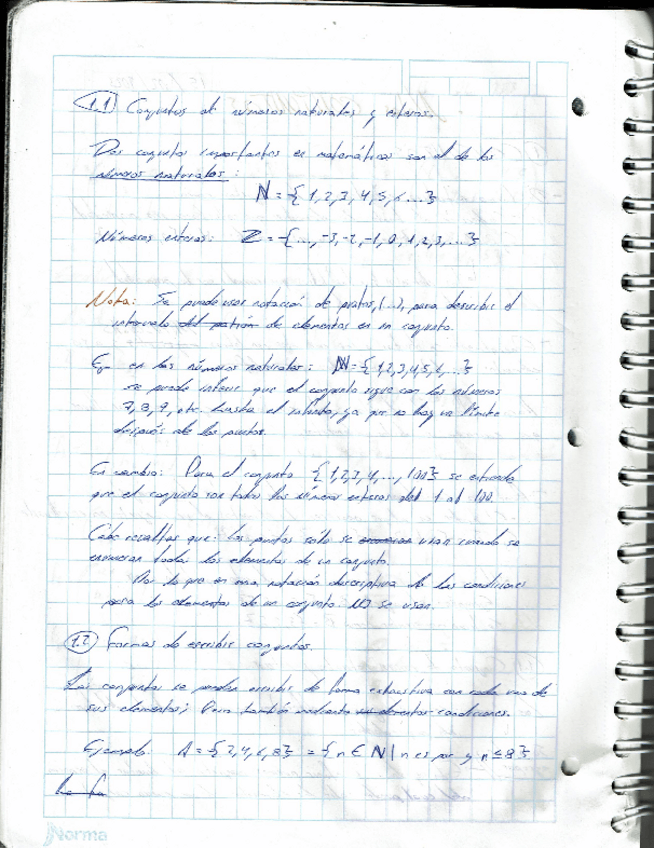 1.1 Conjuntos de números naturales y enteros.
Dos conjuntos importantes en matemáticas son el de los
números naturales:
N = {1,2,3,4,5,6...}
Números enteros: Z = {..., -3,-2,-1,0,1,2,3,...}
Nota: Se puede usar notación de puntos, (...), para describir el
intervalo del patrón de elementos en un conjunto.
Ej. en los números naturales: N = {1,2,3,4,5,6,...}
se puede inferir que el conjunto sigue con los números
7,8,9, etc. hasta el infinito, ya que no hay un límite
después de los puntos.
En cambio: Para el conjunto {1,2,3,4,..., 100} se entiende
que el conjunto son todos los números enteros del 1 al 100.
Cabe resaltar que: los puntos sólo se usan cuando se
enumeran todos los elementos de un conjunto.
Por lo que en una notación descriptiva de las condiciones
para los elementos de un conjunto NO se usan.
1.2 Formas de escribir conjuntos.
Los conjuntos se pueden escribir de forma exhaustiva con cada uno de
sus elementos; Pero también mediante condiciones.
Ejemplo: A = {2,4,6,8} = {n ∈ N | n es par y n ≤ 8}
Norma